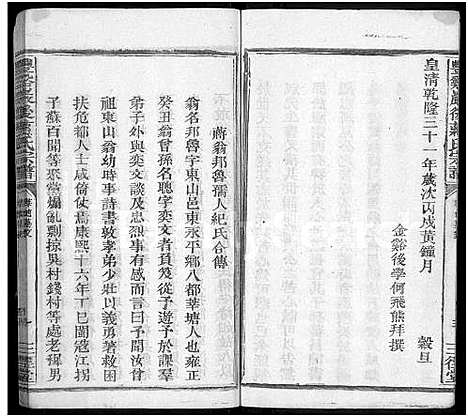 皇清乾隆三十一年歲次丙戌黃鐘月
穀旦
金谿後學何飛熊拜撰
蔣翁邦魯孺人紀氏合傳
翁名邦魯字東山邑東永平鄉八都莘塘人也
癸丑翁曾孫名聰字奕文者負笈從予遊于於課羣
弟子外與奕文談及忠孝事有感而言曰
祖東山翁幼時事詩書敦孝弟少壯以義勇著救困
扶危鄉人士咸倚仗焉康熙十六年丁巳閩寇江拐
子蘇百開等聚黨煽亂剽掠吳村錢村等處老穉男
三徑堂